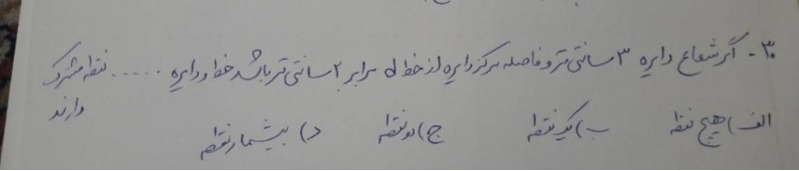 ۳- اگر شعاع دایره ۳ سانتی متر و فاصله مرکز دایره از خط d برابر ۲ سانتی متر باشد خط و دایره ..... نقطه مشترک
دارند
الف) هیچ نقطه ب) یک نقطه ج) دو نقطه د) بیشمار نقطه